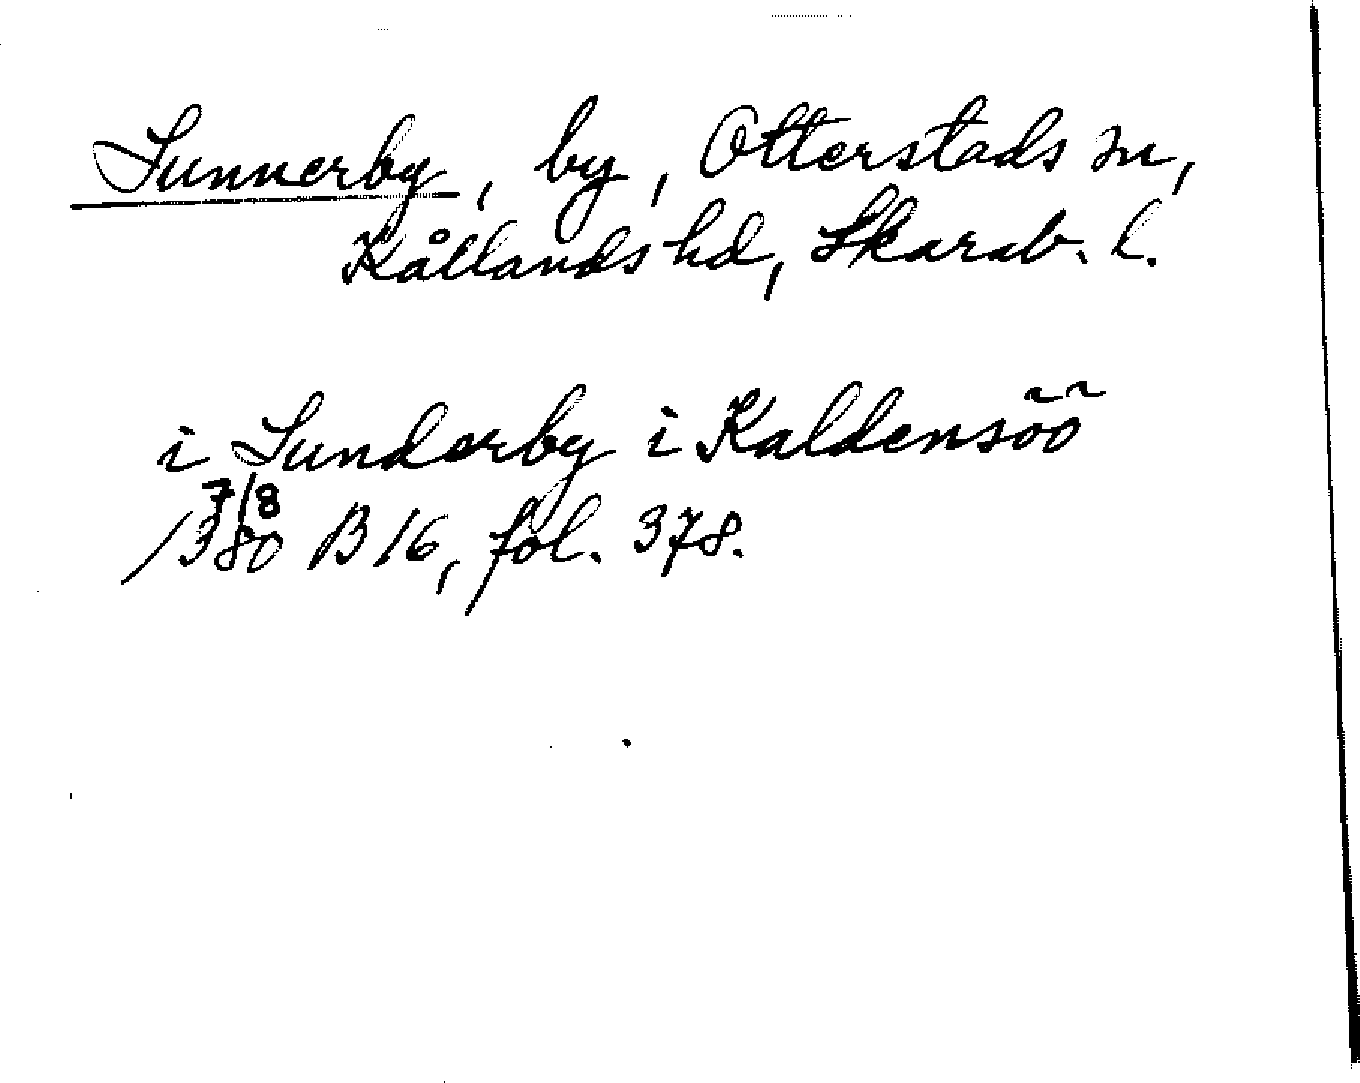 Sunnerby, by, Otterstads sn,
Kållands hd, Skarab. l.
i Sunderby i Kaldensöö
7/8
1380 B 16, fol. 378.